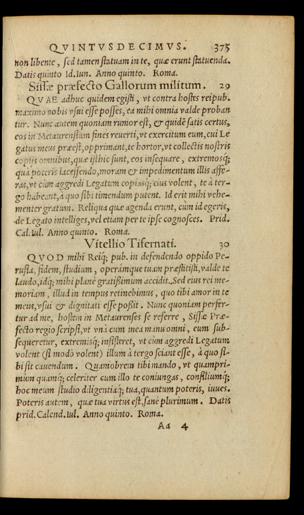 QVINTVS DECIMVS. 375
non libente, sed tamen statuam in te, quæ erunt statuenda.
Datis quinto Id. Iun. Anno quinto. Roma.
Sissæ præfecto Gallorum militum. 29
QVAE adhuc quidem egisti, vt contra hostes reipub.
maximo nobis vsui esse posses, ea mihi omnia valde proban
tur. Nunc autem quoniam rumor est, & quidē satis certus,
eos in Metaurensium fines reuerti, vt exercitum eum, cui Le
gatus meus præest, opprimant, te hortor, vt collectis nostris
copiis omnibus, quæ isthic sunt, eos insequare, extremosq;
qua poteris lacessendo, moram & impedimentum illis affe-
ras, vt cùm aggredi Legatum copiasq; eius volent, te à ter-
go habeant, à quo sibi timendum putent. Id erit mihi vehe-
menter gratum. Reliqua quæ agenda erunt, cum id egeris,
de Legato intelliges, vel etiam per te ipse cognosces. Prid.
Cal. Iul. Anno quinto. Roma.
Vitellio Tifernati. 30
QVOD mihi Reiq; pub. in defendendo oppido Pe-
rusia, fidem, studium, operámque tuam præstitisti, valde te
laudo, idq; mihi planè gratissimum accidit. Sed eius rei me-
moriam, illud in tempus retinebimus, quo tibi amor in te
meus, vsui & dignitati esse possit. Nunc quoniam perfer-
tur ad me, hostem in Metaurenses se referre, Sissæ Præ-
fecto regio scripsi, vt vnà cum mea manu omni, eum sub-
sequeretur, extremisq; insisteret, vt cùm aggredi Legatum
volent (si modò volent) illum à tergo sciant esse, à quo si-
bi sit cauendum. Quamobrem tibi mando, vt quampri-
mium quamq; celeriter cum illo te coniungas, consiliumq;
hoc meum studio diligentiáq; tua, quantum poteris, iuues.
Poteris autem, quæ tua virtus est, sanè plurimum. Datis
prid. Calend. Iul. Anno quinto. Roma.
Aa 4